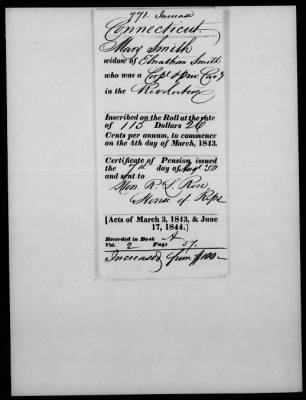 771. Increase
Connecticut.
Mary Smith
widow of Elnathan Smith
who was a Corpl & priv Cavy
in the Revolution
Inscribed on the Roll at the rate
of 113 Dollars 26
Cents per annum, to commence
on the 4th day of March, 1843.
Certificate of Pension issued
the 7th day of Augt 50
and sent to
Hon. R. L. Rose
House of Reps
[Acts of March 3, 1843, & June
17, 1844.]
Recorded in Book A
Vol. 2 Page 57.
Increased from $100